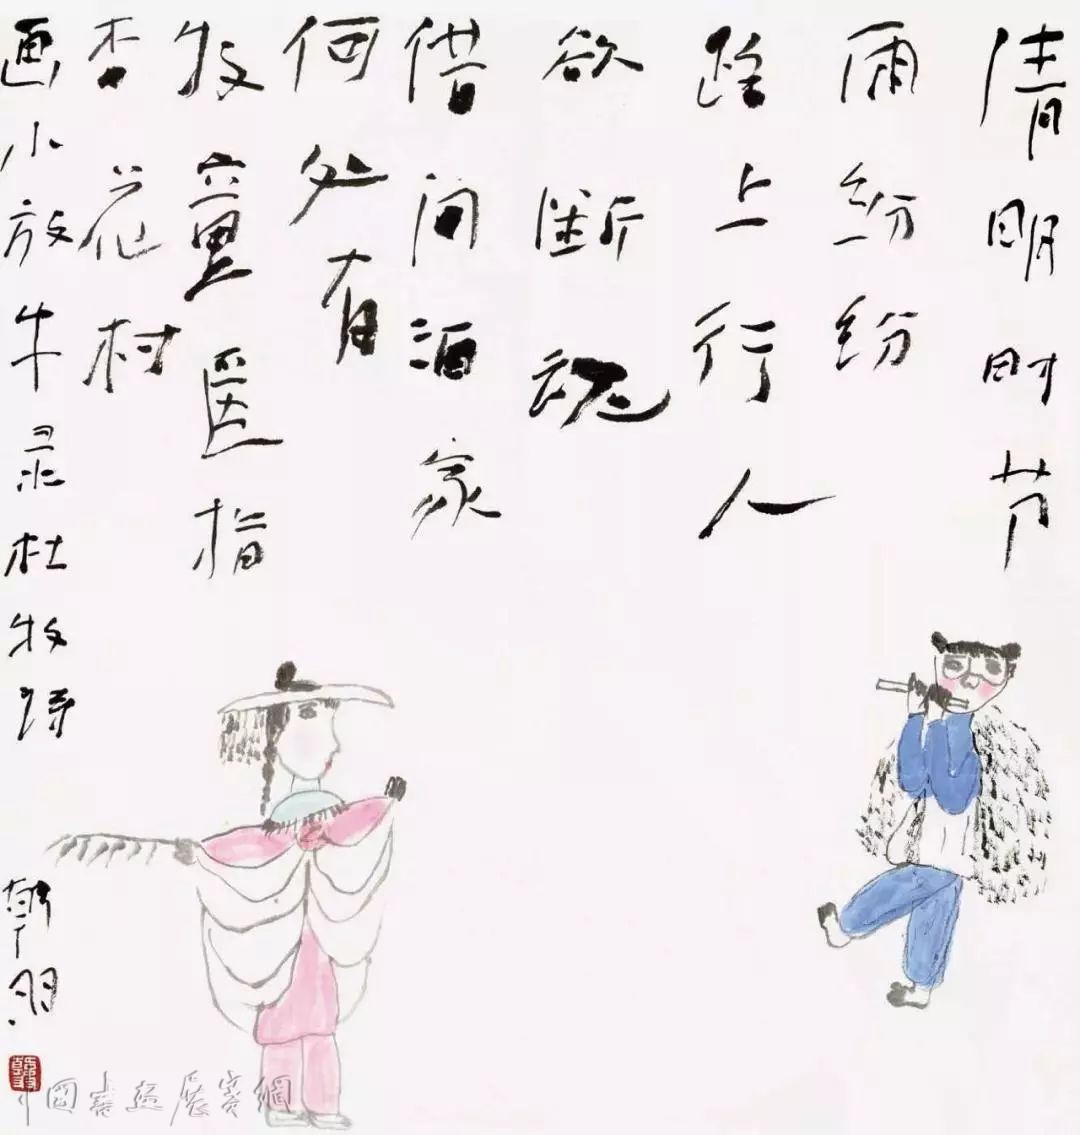 清明时节
雨纷纷
路上行人
欲断魂
借问酒家
何处有
牧童遥指
杏花村
画小放牛录杜牧诗
韩羽
中國書畫展賽網